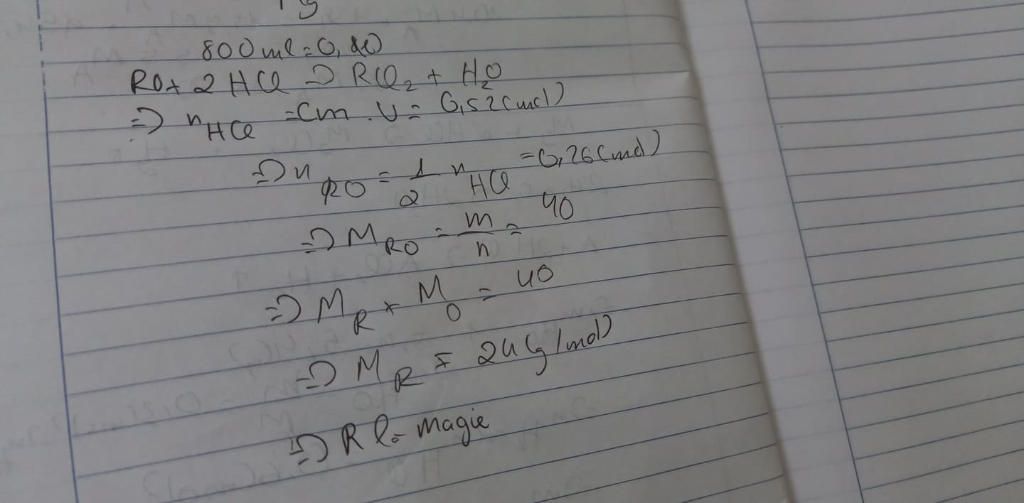 800ml = 0,80
RO + 2HCl => RCl2 + H2O
=> nHCl = Cm . V = 0,52 (mol)
=> nRO = 1/2 nHCl = 0,26 (mol)
=> MRO = m/n = 40
=> MR + MO = 40
=> MR = 24 (g/mol)
=> R là magie